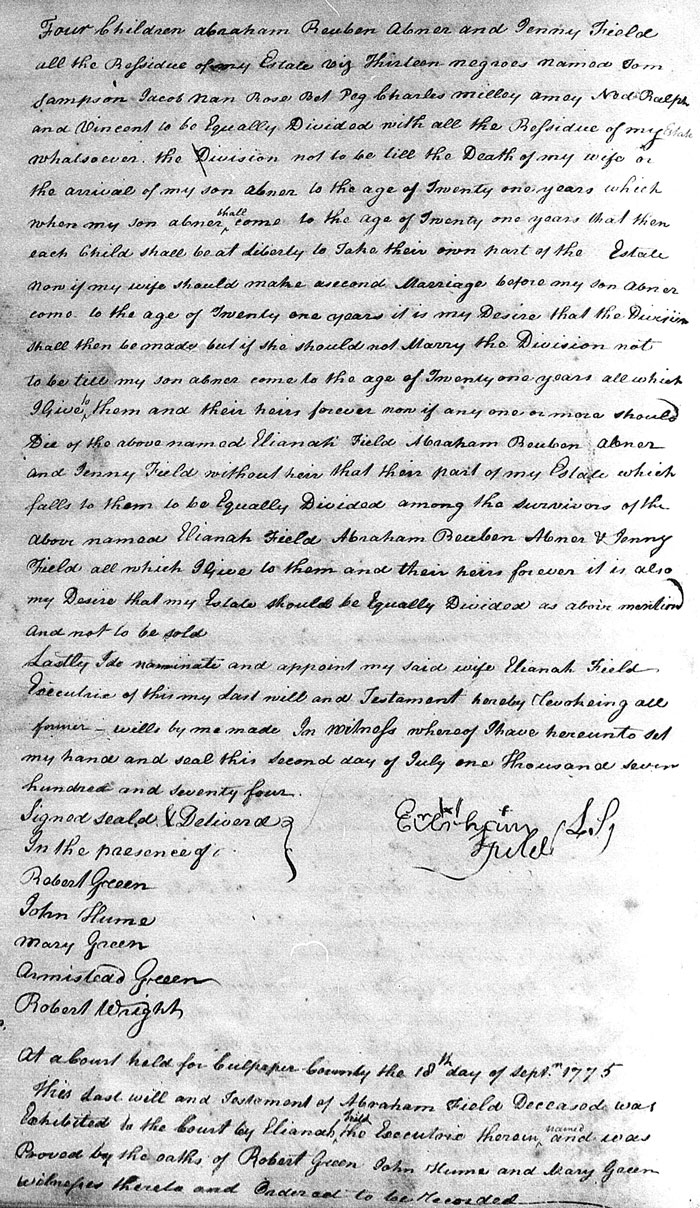 Four Children Abraham Reuben Abner and Jenny Field
all the Ressidue of my Estate viz Thirteen negroes named Tom
Sampson Jacob Nan Rose Bet Peg Charles milley amey Ned Ralph
and Vincent to be Equally Divided with all the Ressidue of my Estate
whatsoever. the Division not to be till the Death of my wife or
the arrival of my son abner to the age of Twenty one years which
when my son abner shall come to the age of Twenty one years that then
each Child shall be at liberty to Take their own part of the Estate
Now if my wife should make a second Marriage before my son Abner
come to the age of Twenty one years it is my Desire that the Division
shall then be made but if she should not Marry the Division not
to be till my son abner come to the age of Twenty one years all which
I Give to them and their heirs forever now if any one or more should
Die of the above named Elianah Field Abraham Reuben Abner
and Jenny Field without heir that their part of my Estate which
falls to them to be Equally Divided among the survivors of the
above named Elianah Field Abraham Reuben Abner & Jenny
Field all which I Give to them and their heirs forever it is also
my Desire that my Estate should be Equally Divided as above mention
and not to be sold
Lastly I do nominate and appoint my said wife Elianah Field
Executrix of this my Last will and Testament hereby Revokeing all
former wills by me made In witness whereof I have hereunto set
my hand and seal this second day of July one thousand seven
hundred and seventy four.
Signed seald & Deliverd
In the presence of
Field (L.S)
Robert Green
John Hume
Mary Green
Armistead Green
Robert Wright
At a Court held for Culpeper County the 18th day of Septm. 1775
This Last will and Testament of Abraham Field Deceased was
Exhibited to the Court by Elianah Field the Executrix therein named and was
Proved by the oaths of Robert Green John Hume and Mary Green
witnesses thereto and Ordered to be Recorded